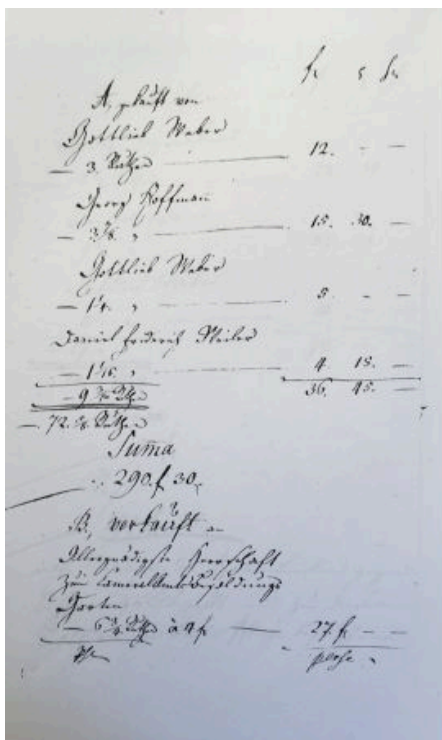 A, gekauft von
Gottlieb Weber
— 3. Ruthen — 12. - —
Georg Hoffmann
— 3 3/8. " — 15. 30. —
Gottlieb Weber
— 1 1/4. " — 5. - —
Daniel Friderich Weiler
— 1 1/16. " — 4. 15. —
36. 45. —
Suma
290. f 30.
B, verkauft an
Allergnädigste Herrschaft
zum Cameralamts Besoldungs
Garten
— 6 3/4 Ruthen à 4 f — 27. f. - —